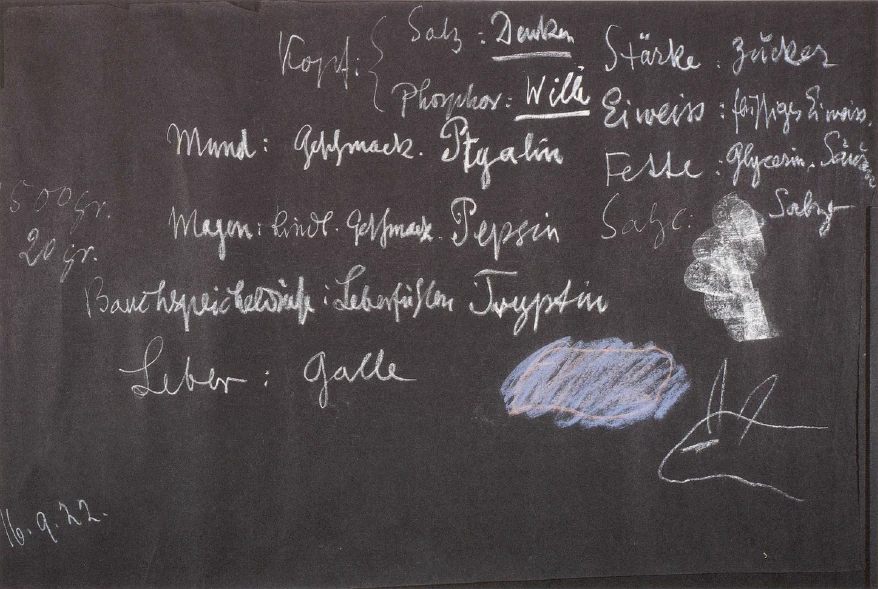 Kopf: Salz: Denken
Phosphor: Wille
Mund: Geschmack. Ptyalin
Magen: kindl. Geschmack. Pepsin
Bauchspeicheldrüse: Leberfühlen Tryptin
Leber: Galle
Stärke: Zucker
Eiweiss: flüssiges Eiweiss.
Fette: Glycerin. Säuren
Salze: Salze
500 gr.
20 gr.
16.9.22.